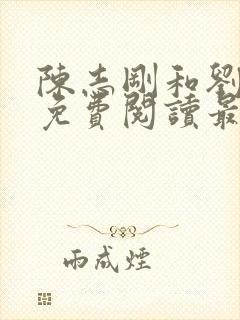 陳志剛和劉
免費閱讀最
雨成煙